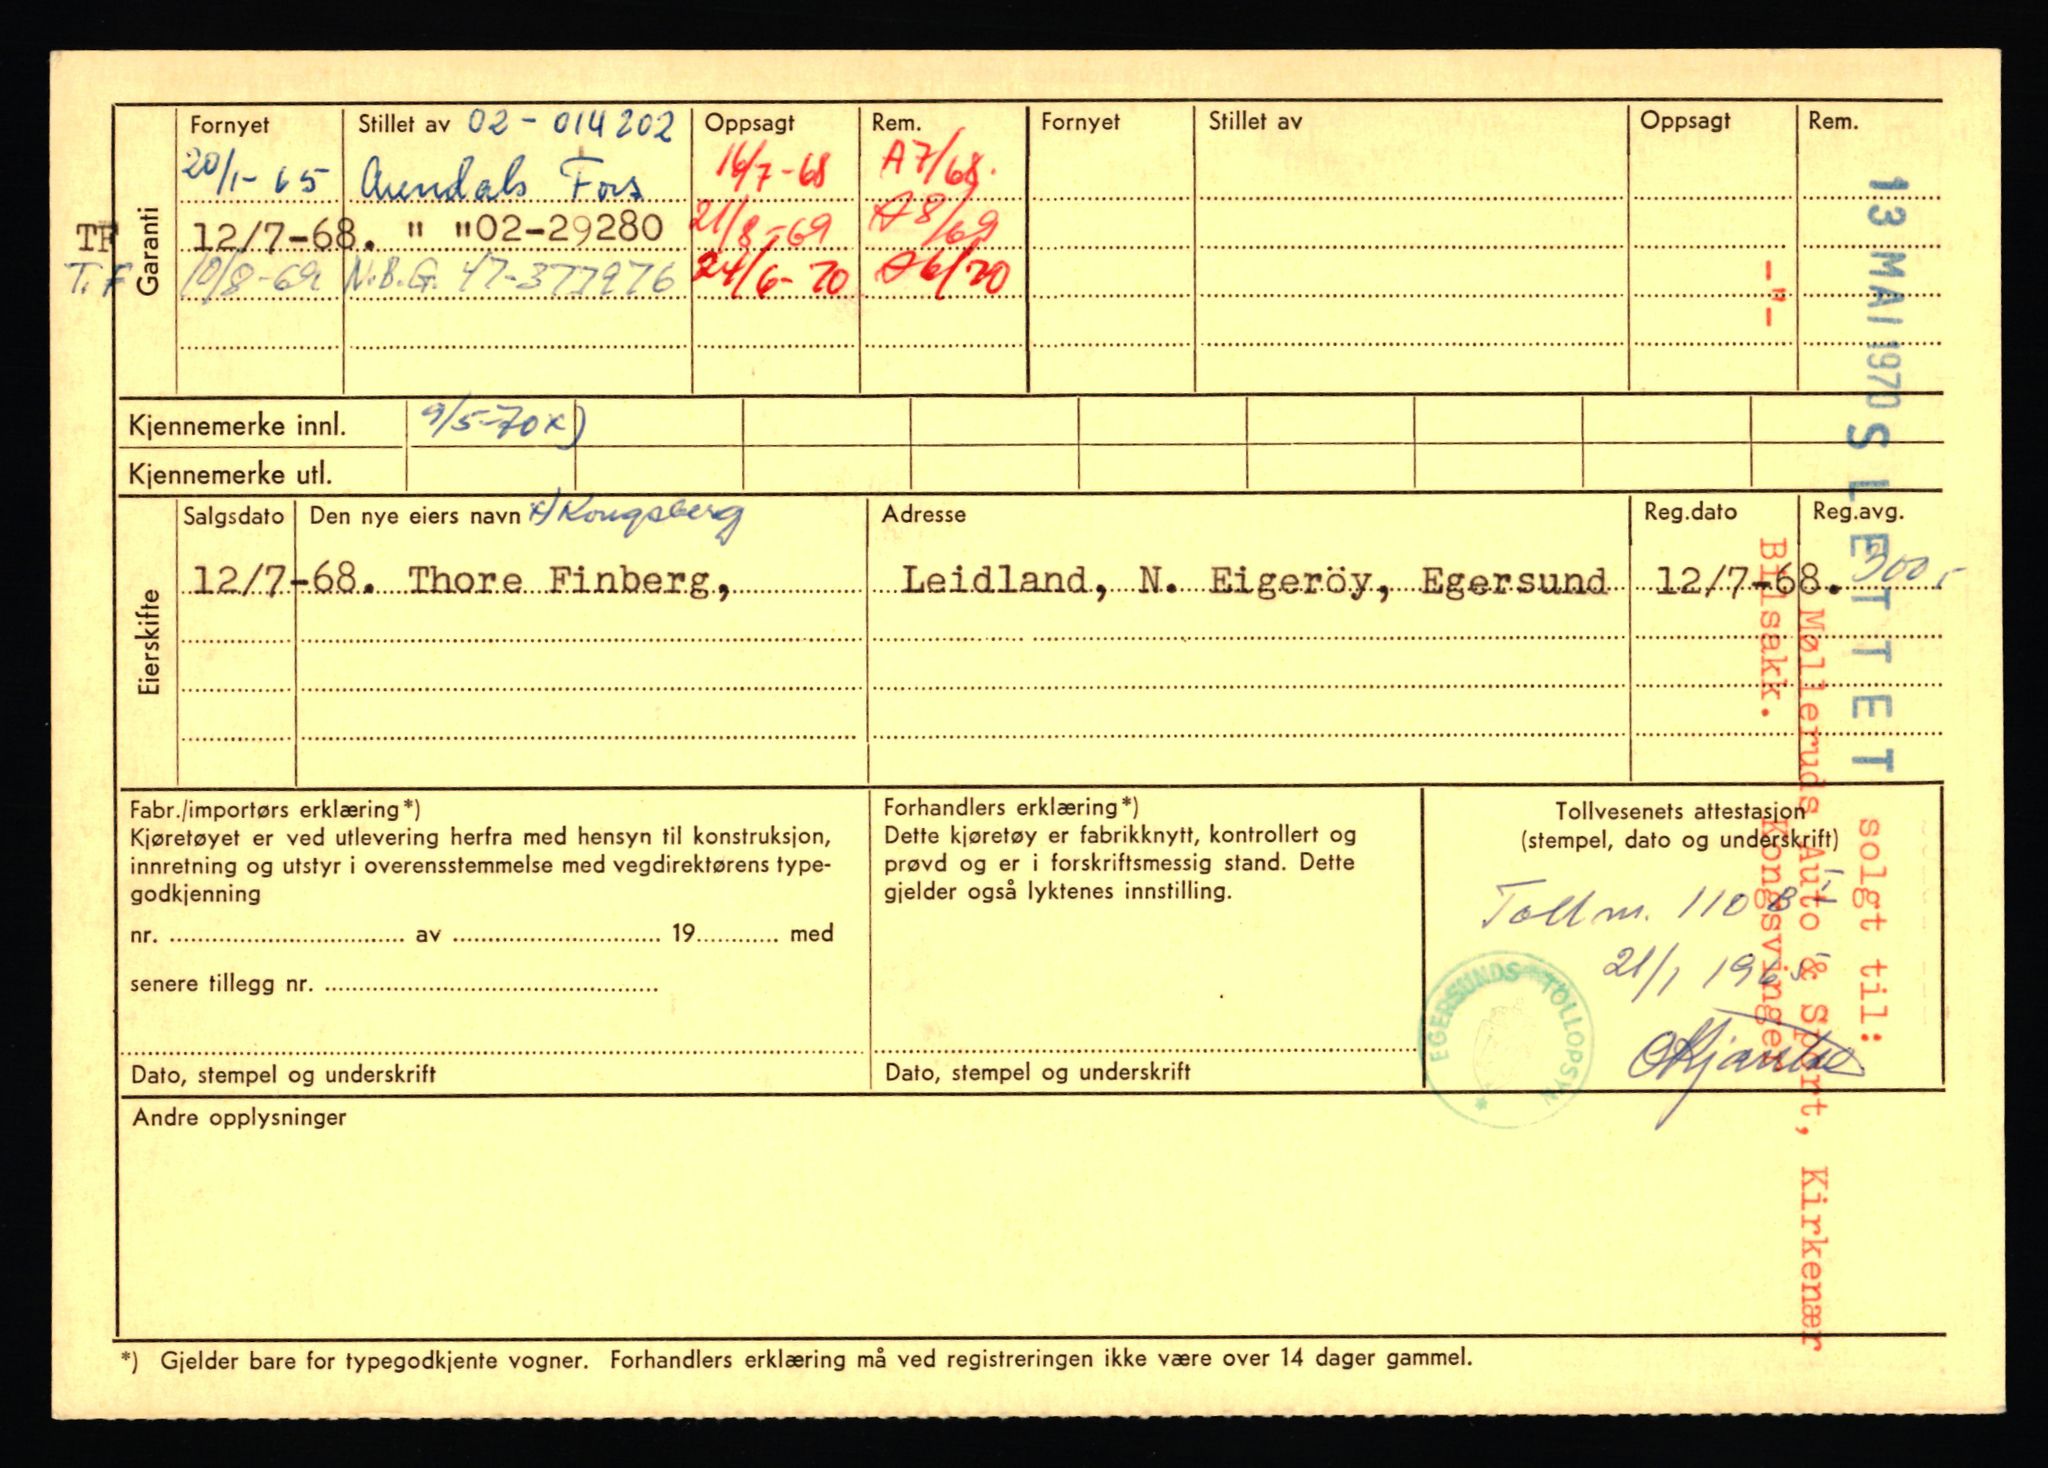 Fornyet Stillet av 02-014202 Oppsagt Rem. Fornyet Stillet av Oppsagt Rem.
Garanti
20/1-65 Arendals Fors 16/7-68 A7/68.
TF 12/7-68. " " 02-29280 21/8-69 A8/69
T.F 10/8-69 N.B.G. 47-377976 24/6-70 A6/70
Kjennemerke innl. 9/5-70 x)
Kjennemerke utl.
Eierskifte
Salgsdato Den nye eiers navn x) Kongsberg Adresse Reg.dato Reg.avg.
12/7-68. Thore Finberg, Leidland, N. Eigeröy, Egersund 12/7-68. 300,-
Fabr./importørs erklæring*)
Kjøretøyet er ved utlevering herfra med hensyn til konstruksjon,
innretning og utstyr i overensstemmelse med vegdirektørens type-
godkjenning
nr. av 19 med
senere tillegg nr.
Dato, stempel og underskrift
Forhandlers erklæring*)
Dette kjøretøy er fabrikknytt, kontrollert og
prøvd og er i forskriftsmessig stand. Dette
gjelder også lyktenes innstilling.
Dato, stempel og underskrift
Tollvesenets attestasjon
(stempel, dato og underskrift)
Toll nr. 110
21/1 1965
EGERSUNDS TOLLOPSYN *
Andre opplysninger
*) Gjelder bare for typegodkjente vogner. Forhandlers erklæring må ved registreringen ikke være over 14 dager gammel.
13 MAI 1970 SLETTET
solgt til:
Mølleruds Auto & Sport, Kirkenær
-"- Bilsakk. Kongsvinger